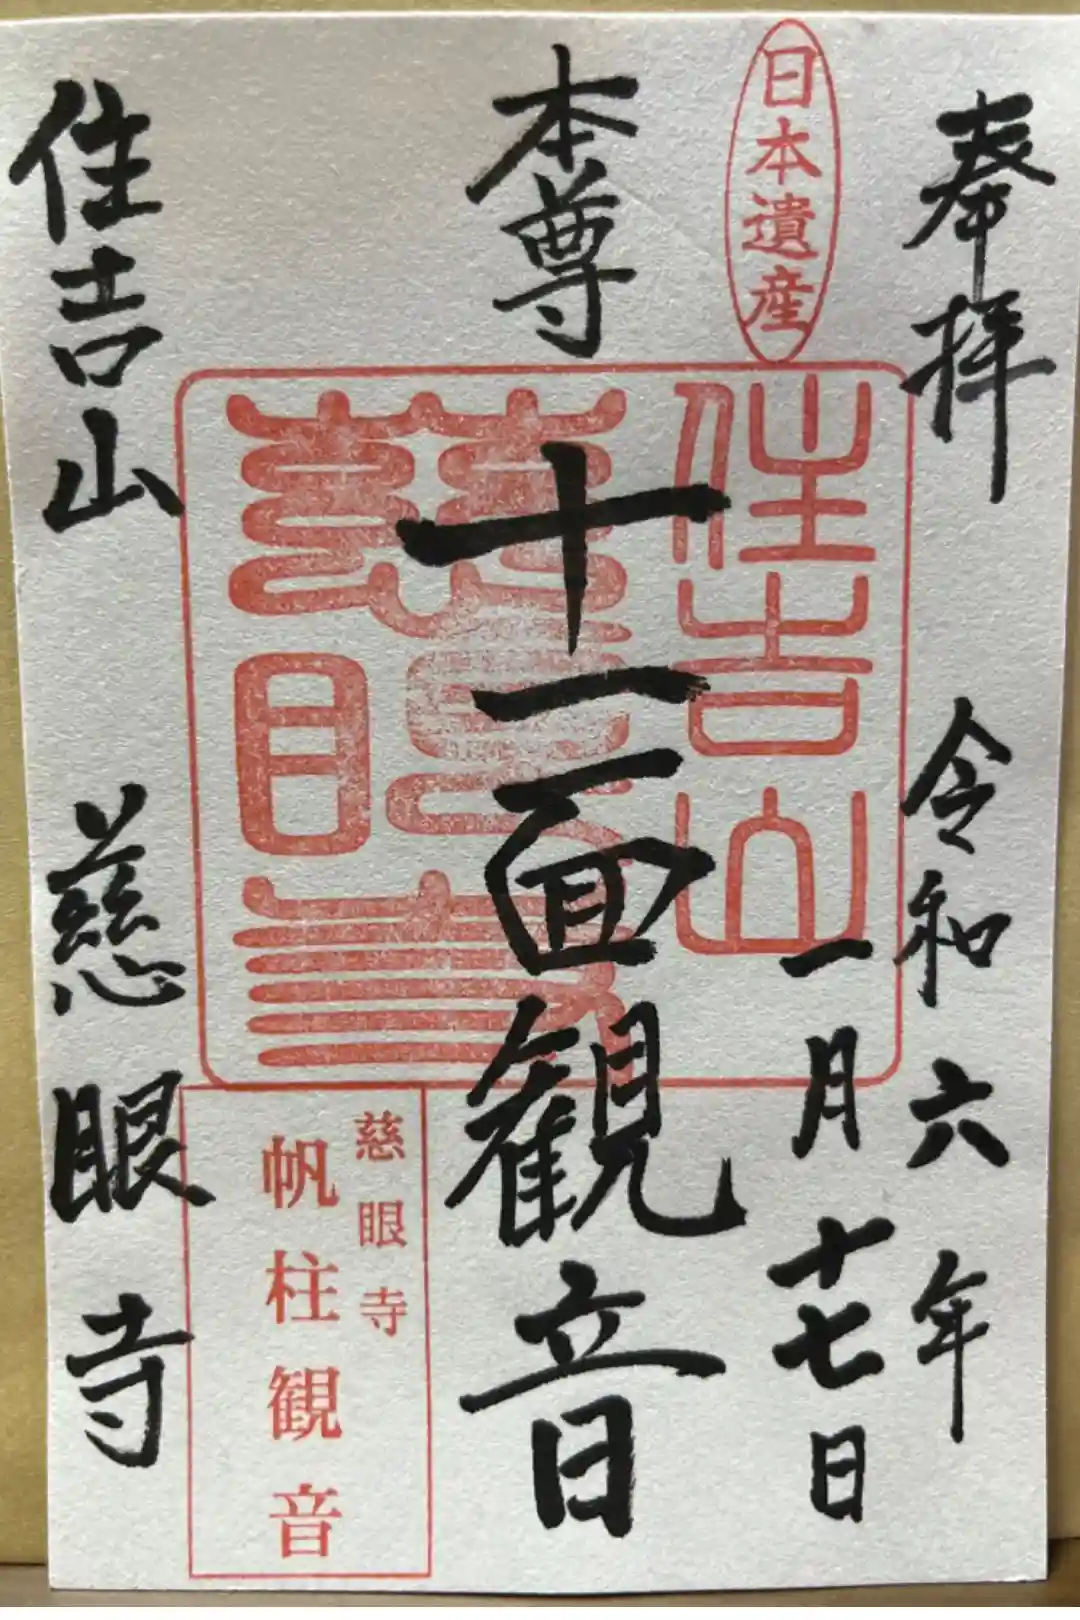 奉拝
令和六年
一月十七日
日本遺産
住吉山
本尊
十一面観音
慈眼寺
慈眼寺
帆柱観音
住吉山
慈眼寺